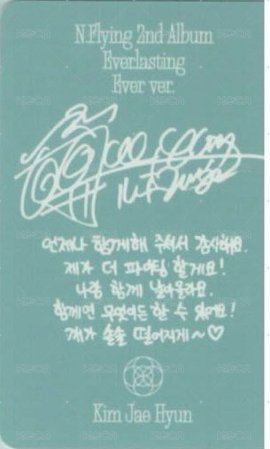 N.Flying 2nd Album
Everlasting
Ever ver.
언제나 함께해 주셔서 감사해요.
제가 더 파이팅 할게요!
나랑 함께 날아올라요.
함께면 무엇이든 할 수 있어요!
깨가 솔솔 떨어지게~♡
Kim Jae Hyun